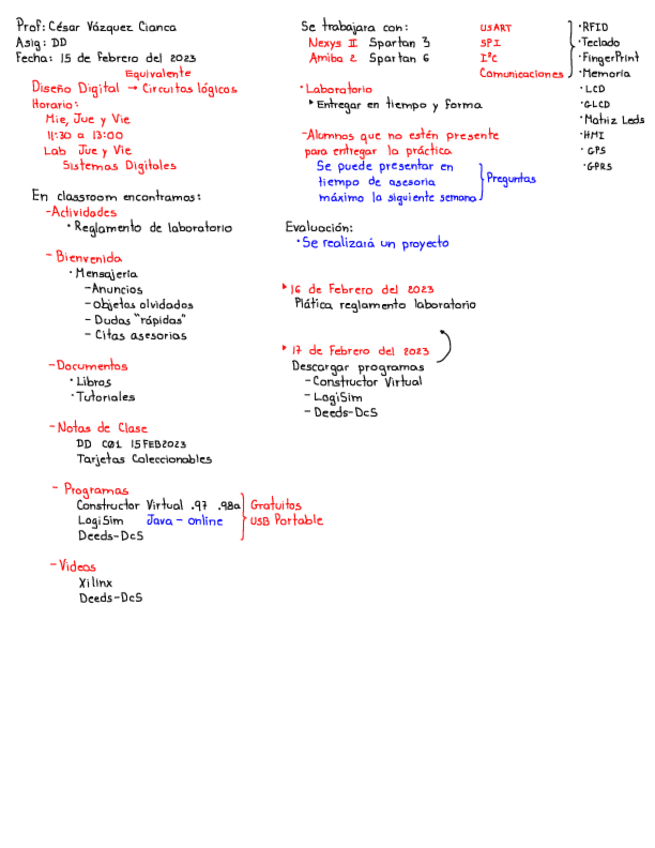 Prof: César Vázquez Cianca
Asig: DD
Fecha: 15 de Febrero del 2023
Equivalente
Diseño Digital → Circuitos lógicos
Horario:
Mie, Jue y Vie
11:30 a 13:00
Lab Jue y Vie
Sistemas Digitales
En classroom encontramos:
-Actividades
· Reglamento de laboratorio
- Bienvenida
· Mensajería
-Anuncios
-objetos olvidados
- Dudas "rápidas"
- Citas asesorias
-Documentos
· Libros
· Tutoriales
-Notas de Clase
DD C01 15FEB2023
Tarjetas Coleccionables
- Programas
Constructor Virtual .97 .98a
LogiSim Java - online
Deeds-DcS
Gratuitos
USB Portable
-Videos
Xilinx
Deeds-DcS
Se trabajara con:
Nexys II Spartan 3
Amiba 2 Spartan 6
USART
SPI
I²C
Comunicaciones
·RFID
·Teclado
·FingerPrint
·Memoria
·LCD
·GLCD
·Matriz Leds
·HMI
· GPS
·GPRS
·Laboratorio
Entregar en tiempo y forma
-Alumnos que no estén presente
para entregar la práctica
Se puede presentar en
tiempo de asesoria
máximo la siguiente semana
Preguntas
Evaluación:
·Se realizará un proyecto
16 de Febrero del 2023
Plática reglamento laboratorio
17 de Febrero del 2023
Descargar programas
-Constructor Virtual
- LogiSim
- Deeds-DcS